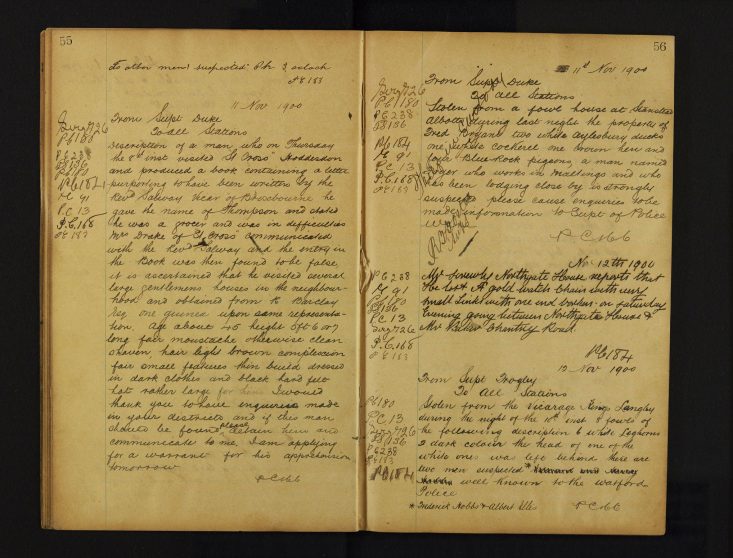 55
to other men suspected P.hr 3 oclock
PS 183
11 Nov 1900
Sergt 726
PC 180
PC 238
PS 136
PC 180
PC 184
M 91
PC 13
P.C. 168
PS 183
From Supt Duke
To all Stations
Description of a man who on Thursday
the 8th inst visited St Cross Hoddesdon
and produced a book containing a letter
purporting to have been written by the
Revd Salway Vicar of Broxbourne he
gave the name of Thompson and stated
he was a grocer and was in difficulties
Mrs Drake of St Cross communicated
with the Revd Salway and the entry in
the Book was then found to be false,
it is ascertained that he visited several
large gentlemens houses in the neighbour-
hood and obtained from R Barclay
Esq one guinea upon same representa-
tion. Age about 45 height 5ft 6 or 7
long fair moustache otherwise clean
shaven, hair light brown complexion
fair small features thin build dressed
in dark clothes and black hard felt
hat rather large for him I would
thank you to have enquiries made
in your districts and if this man
should be found please detain him and
communicate to me, I am applying
for a warrant for his apprehension
tomorrow
PC 66
56
11th Nov 1900
Sergt 726
PC 180
PC 238
PS 136
PC 184
M 91
PC 13
P.C. 168
PS 183
From Supt Duke
To all Stations
Stolen from a fowl house at Stanstead
Abbotts during last night the property of
Fred Bryant two white aylesbury ducks
one white cockerel one brown hen and
four Blue Rock pigeons, a man named
who works in maltings and who
has been lodging close by is strongly
suspected please cause enquiries to be
made information to Supt of Police
PC 66
Nov 12th 1900
PC 238
M 91
PC 180
PS 136
PC 13
Sergt 726
P.C. 168
PS 183
Mr Northgate House reports that
he lost a gold watch chain with very
small Links with one end broken on Saturday
Evening going between Northgate House &
Mr Chantry Road
PC 184
12 Nov 1900
PC 180
PC 13
Sergt 726
PS 136
PC 238
PS 183
PC 184
From Supt Frogley
To All Stations
Stolen from the vicarage Kings Langley
during the night of the 10th inst 8 fowls of
the following description 6 white Leghorns
2 dark colour the head of one of the
white ones was left behind there are
two men suspected *
well known to the Watford
Police
* Frederick Hobbs & Albert Ellis
PC 66